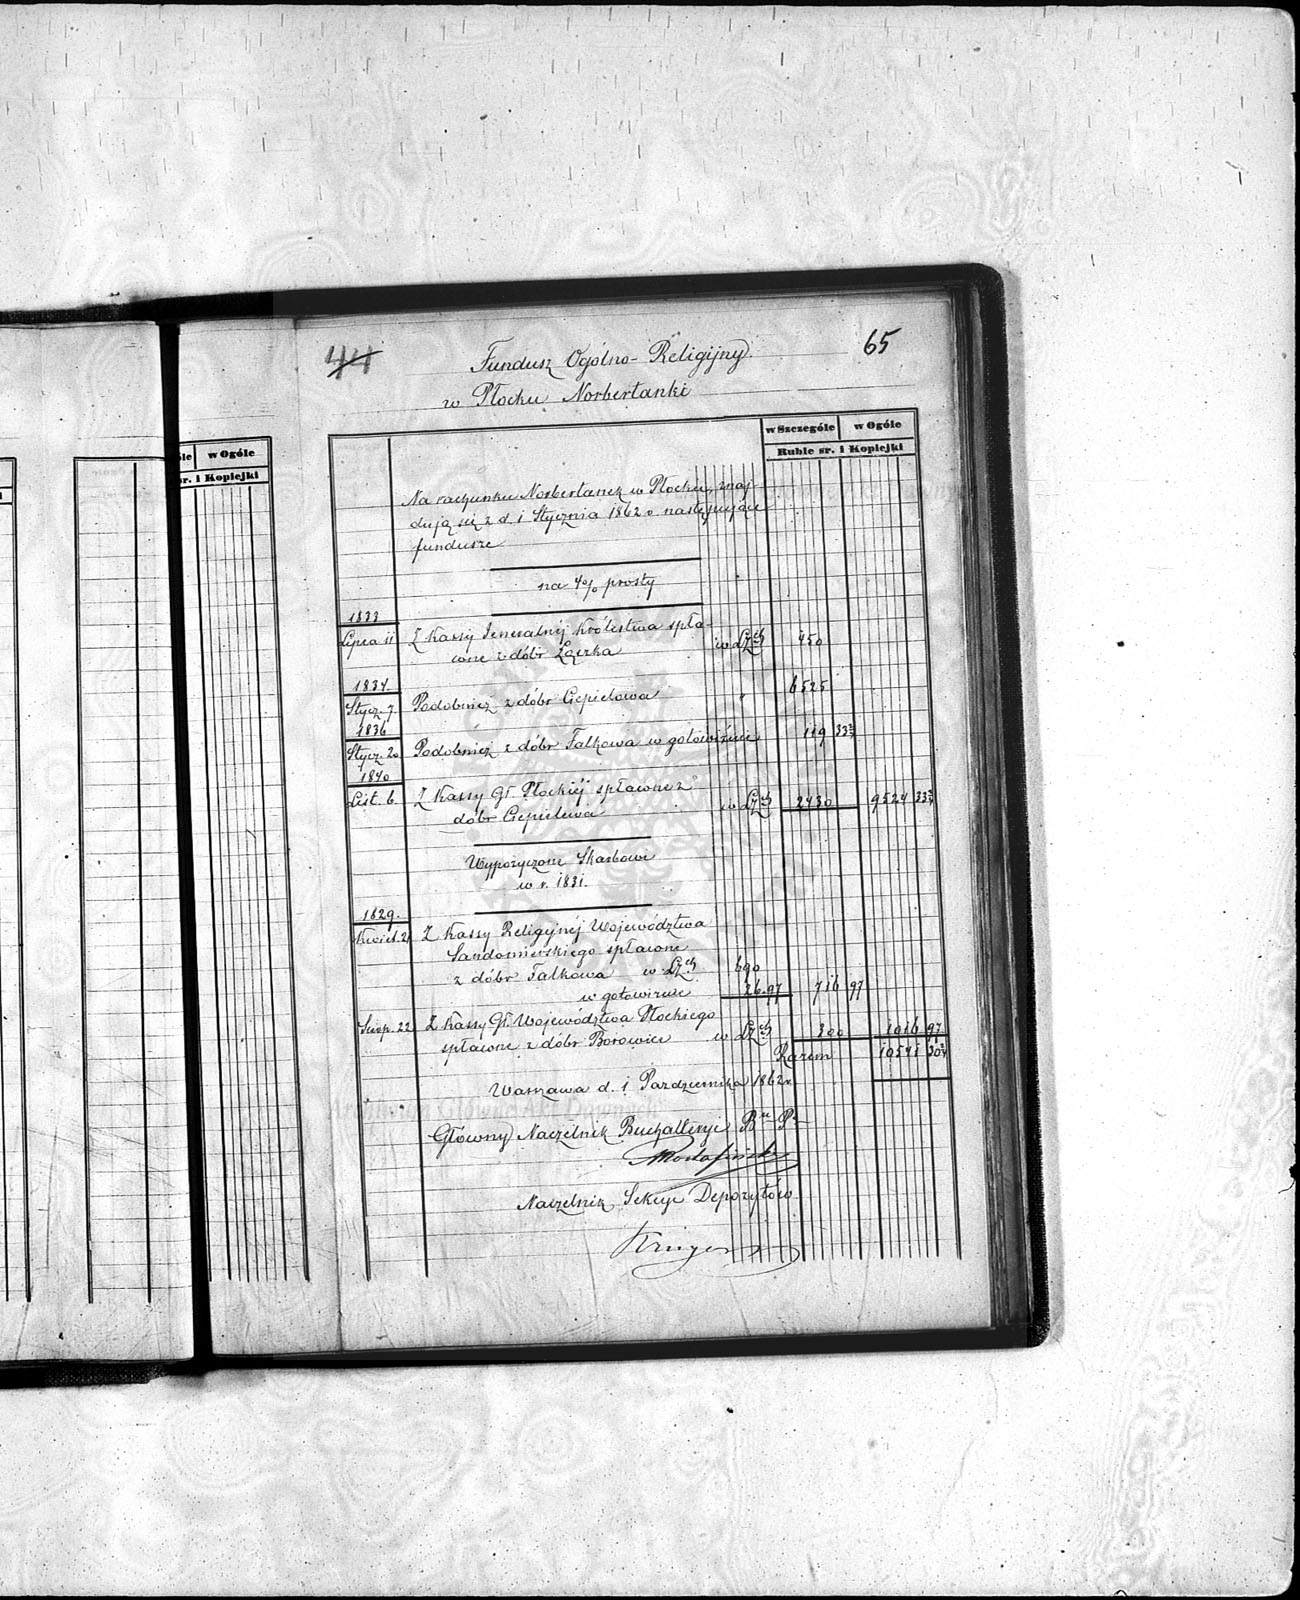 44
65
Fundusz Ogólno-Religijny
w Płocku Norbertanki
w Szczególe w Ogóle
Ruble sr. i Kopiejki
w Ogóle
sr. i Kopiejki
Na rachunku Norbertanek w Płocku, znaj-
dują się z d. 1 Stycznia 1862 r. następujące
fundusze
na 4% prosty
1833
Lipca 11 Z Kassy Jeneralnéj Królestwa spła-
cone z dóbr Łączka w LZch 450
1834.
Stycz. 7. Podobnież z dóbr Ciepielowa " 6525
1836
Stycz. 20 Podobnież z dóbr Fałkowa w gotowiznie 119 33
1840
List. 6. Z Kassy Gł. Płockiéj spłacone z
dóbr Ciepielewa w LZch 2430 9524 33
Wypożyczone Skarbowi
w r. 1831.
1829.
Kwiet. Z Kassy Religijnéj Województwa
Sandomierskiego spłacone
z dóbr Fałkowa w LZch 690
w gotowiznie 26.97 716 97
Sierp. 22 Z Kassy Gł. Województwa Płockiego
spłacone z dóbr Borowice w LZch 300 1016 97
Razem 10541 30
Warszawa d. 1 Października 1862 r.
Główny Naczelnik Buchalteryi
Naczelnik Sekcyi Depozytów
Archiwum Główne Akt Dawnych